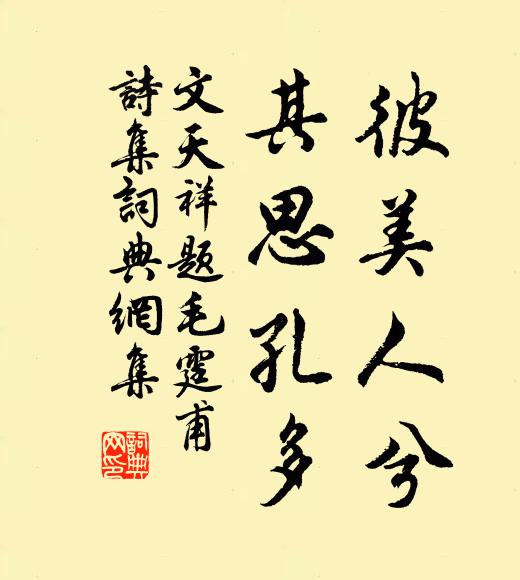 彼美人兮
其思孔多
文天祥题毛霆甫
詩集詞典網集
詞典網印